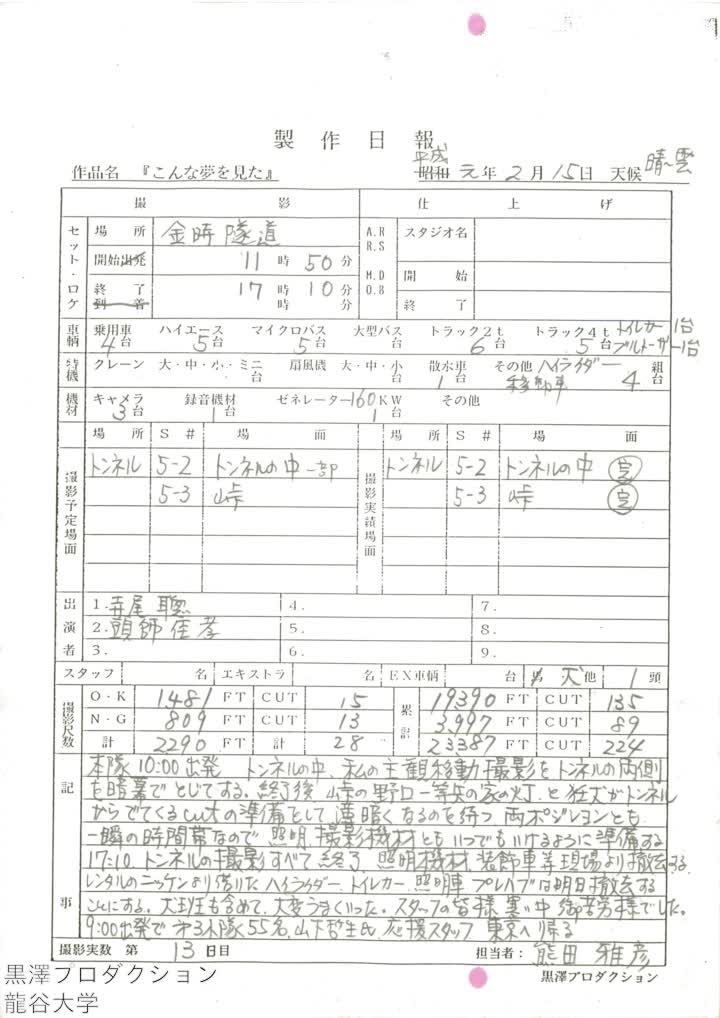 製作日報
作品名 『こんな夢を見た』 昭和 平成 元年 2月 15日 天候 晴〜雲
撮影 仕上げ
セット・ロケ 場所 金時隧道 A.R R.S スタジオ名
開始 出発 11時 50分 M.D O.B 開始
終了 17時 10分 終了
到着 時 分
車輌 乗用車 4台 ハイエース 5台 マイクロバス 5台 大型バス 台 トラック2t 6台 トラック4t 5台 トイレカー 1台 ブルドーザー 1台
特機 クレーン 大・中・小・ミニ 台 扇風機 大・中・小 台 散水車 1台 その他 ハイライダー 移動車 4 組台
機材 キャメラ 3台 録音機材 1台 ゼネレーター 160KW 1台 その他
場所 S# 場面 場所 S# 場面
撮影予定場面 トンネル 5-2 トンネルの中 一部 撮影実績場面 トンネル 5-2 トンネルの中 完
5-3 峠 5-3 峠 完
出演者 1.寺尾 聰 4. 7.
2.頭師佳孝 5. 8.
3. 6. 9.
スタッフ 名 エキストラ 名 EX車輌 台 馬 犬 他 1頭
撮影尺数 O・K 1481 FT CUT 15 累計 19390 FT CUT 135
N・G 809 FT CUT 13 3,997 FT CUT 89
計 2290 FT 計 28 23387 FT CUT 224
記事 本隊10:00出発 トンネルの中、私の主観移動撮影をトンネルの両側
を暗幕でとじてする。終了後 峠の野口一等兵の家の灯と狂犬がトンネル
からでてくるcutの準備をして 薄暗くなるのを待つ 両ポジションとも
一瞬の時間帯なので 照明、撮影機材ともいつでもいけるように準備する
17:10 トンネルの撮影すべて終了 照明機材、装飾車等現場より撤去する。
レンタルのニッケンより借りたハイライダー、トイレカー、照明車 プレハブは明日撤去する
ことにする。犬班も含めて、大変うまくいった。スタッフの皆様 寒い中 御苦労様でした。
9:00出発で 第3小隊55名、山下哲生氏、応援スタッフ 東京へ帰る
撮影実数 第 13日目 担当者: 熊田 雅彦
黒澤プロダクション
黒澤プロダクション
龍谷大学